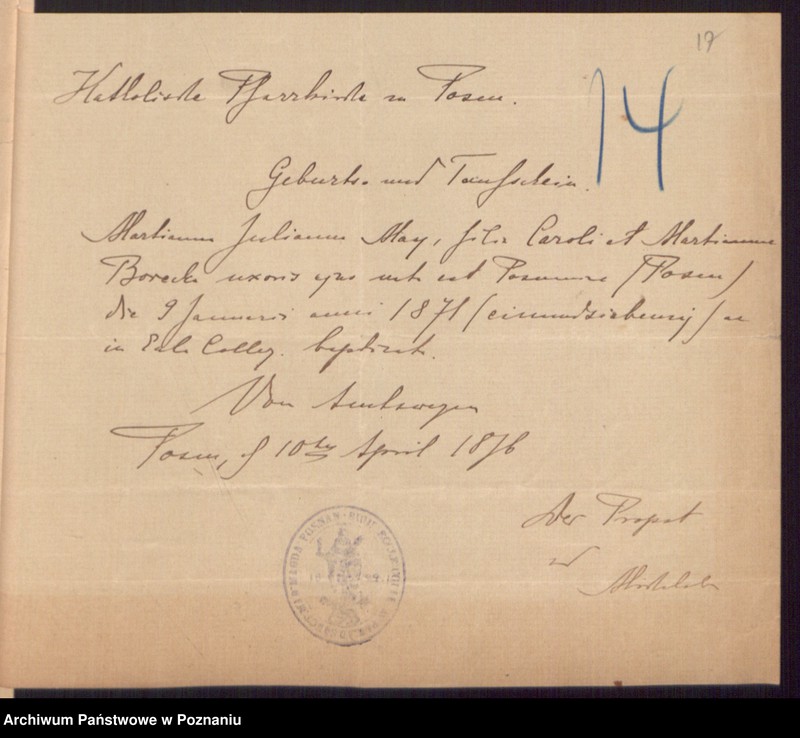 17
14
Katholische Pfarrkirche zu Posen.
Geburts- und Taufschein.
Martianus Julianus May, filius Caroli et Martianna
Borecka uxoris ejus natus est (Posen)
die 9 Januarii anni 1871 (einundsiebenzig) ac
in Eccl. Colleg. baptizat.
Von Amtswegen
Posen, d 10ten April 1876
Der Propst
Archiwum Państwowe w Poznaniu